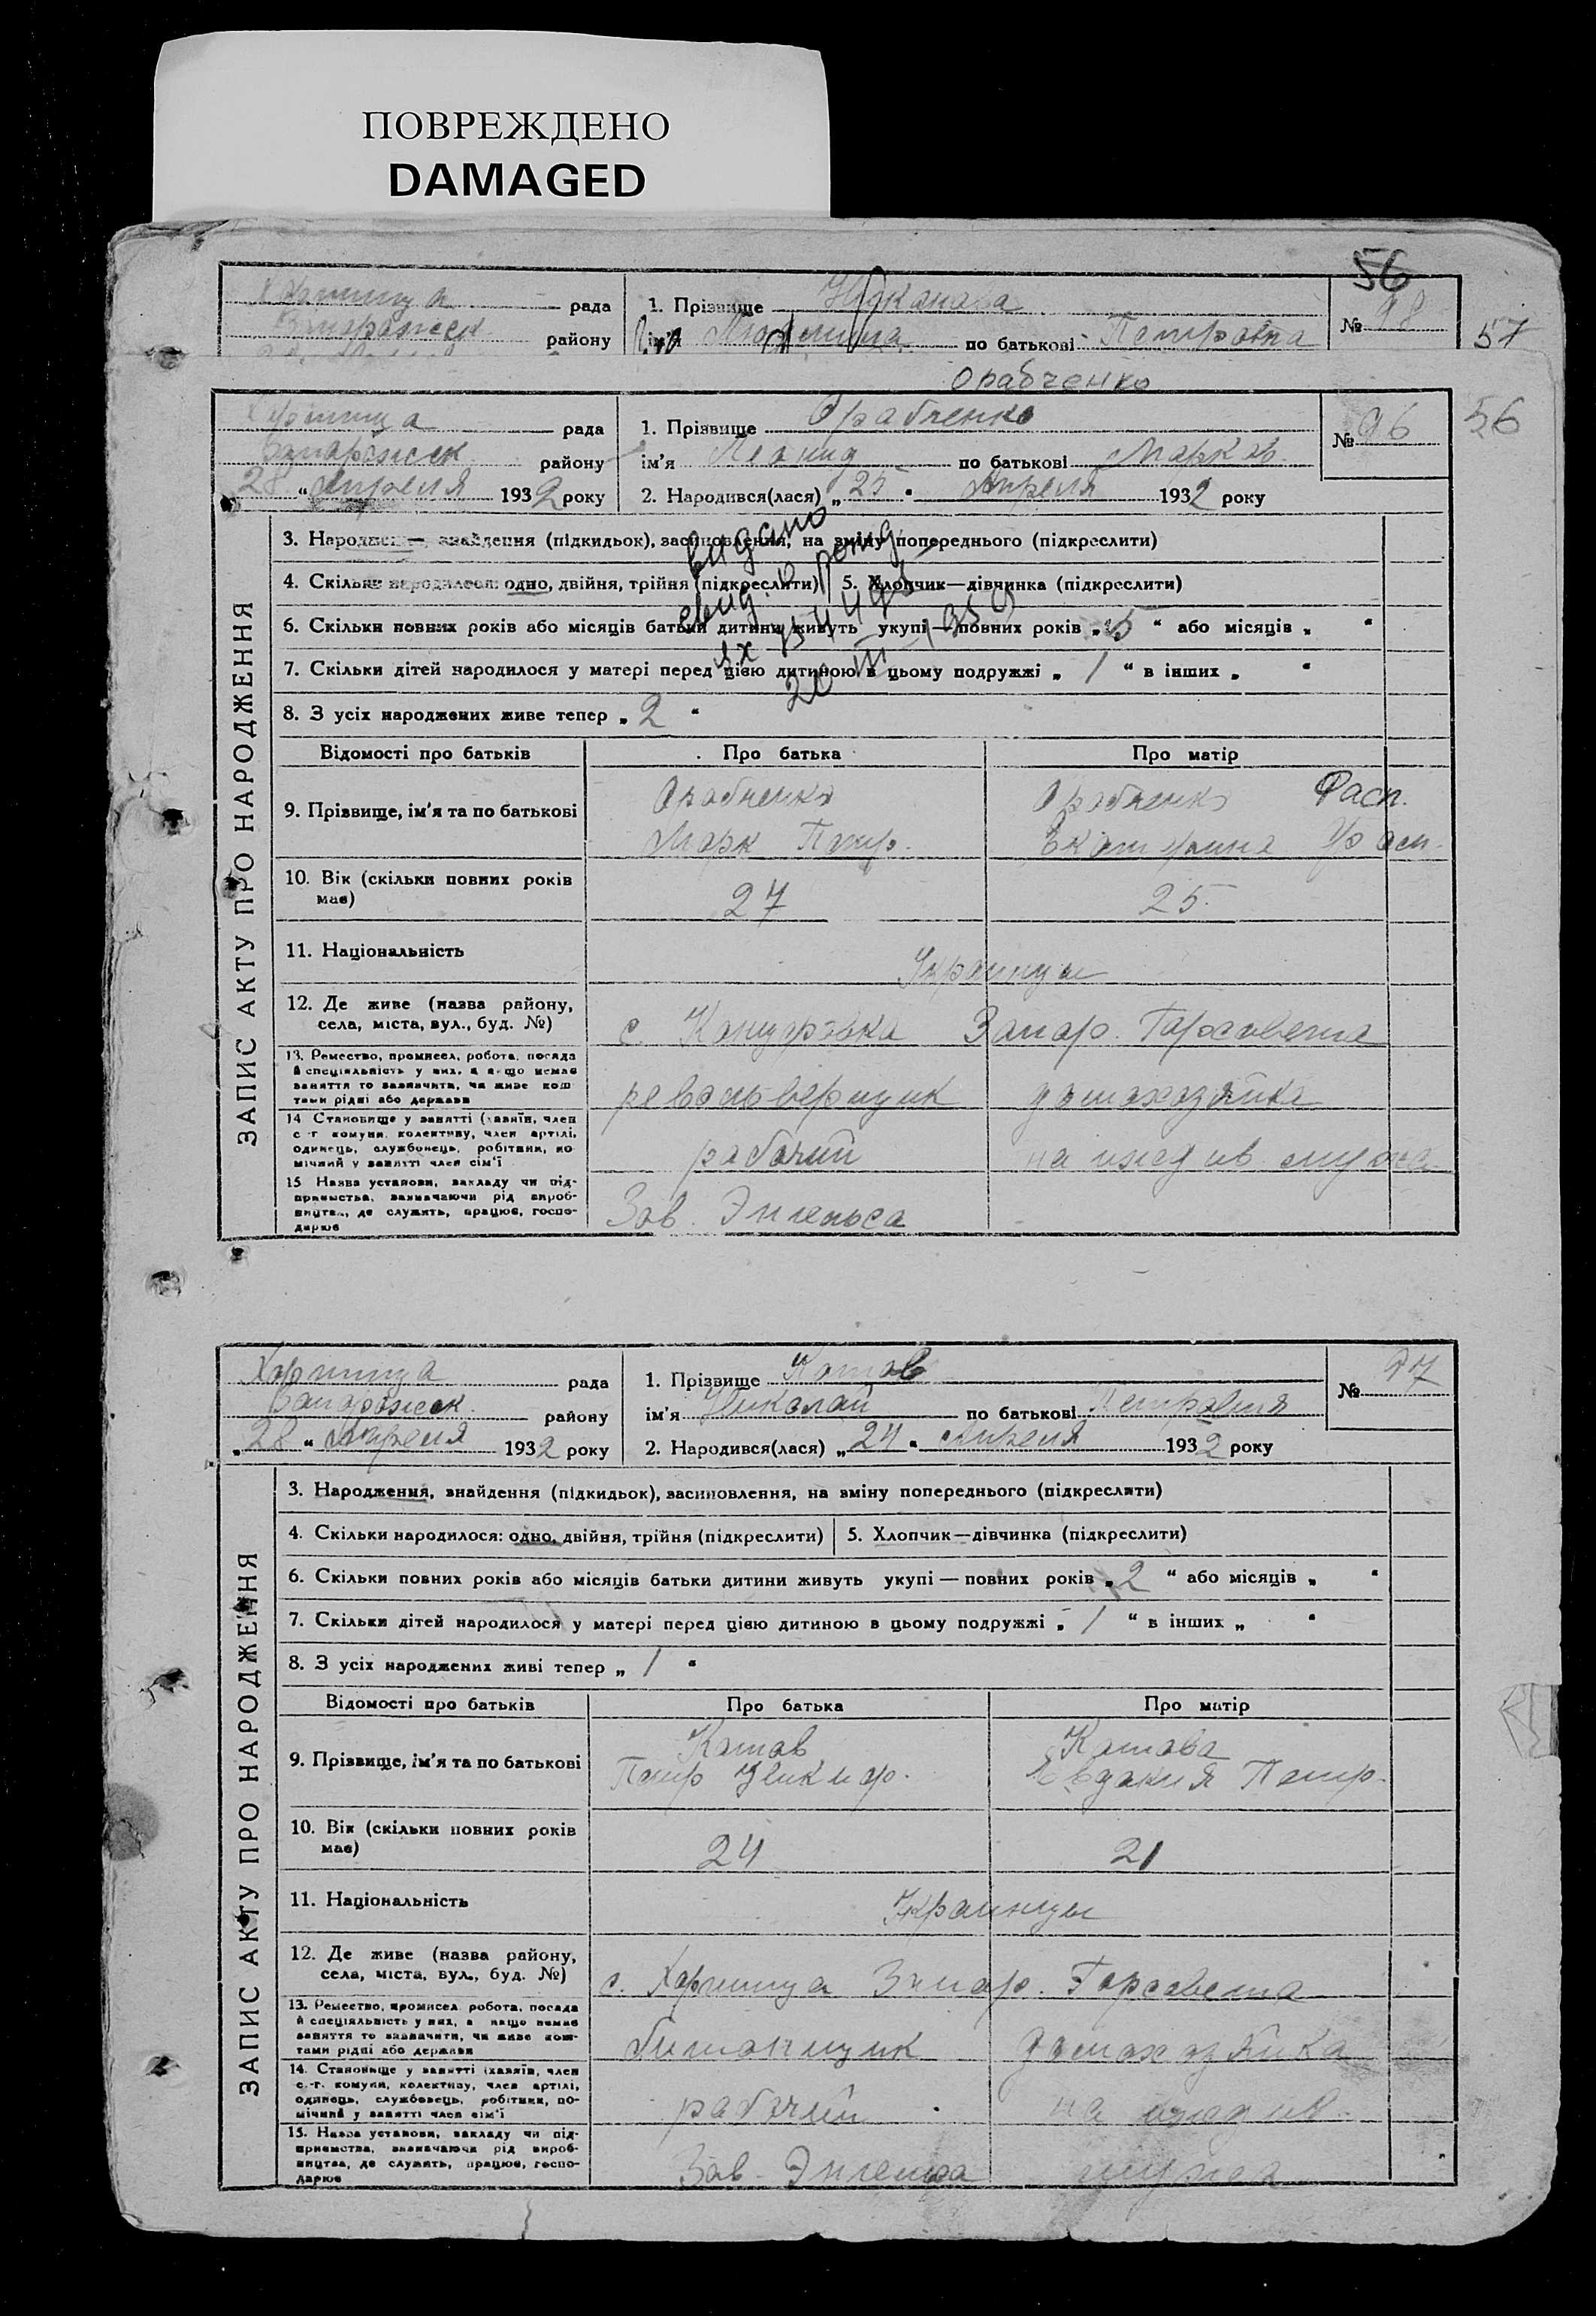 ПОВРЕЖДЕНО
DAMAGED
56
рада 1. Прізвище
району ім'я по батькові Петровна № 98
57
Орабченко
рада 1. Прізвище Орабченко № 96 56
району ім'я Леонид по батькові Марков.
28 " Апреля 1932 року 2. Народився(лася) „ 25 " Апреля 1932 року
ЗАПИС АКТУ ПРО НАРОДЖЕННЯ
3. Народження, знайдення (підкидьок), засиновлення, на зміну попереднього (підкреслити)
4. Скільки народилося: одно, двійня, трійня (підкреслити) 5. Хлопчик—дівчинка (підкреслити)
6. Скільки повних років або місяців батьки дитини живуть укупі — повних років „ 5 “ або місяців „ “
7. Скільки дітей народилося у матері перед цією дитиною в цьому подружжі „ 1 “ в інших „ “
8. З усіх народжених живе тепер „ 2 “
видано
свид. о рожд.
Відомості про батьків Про батька Про матір
9. Прізвище, ім'я та по батькові Орабченко Орабченко Фасп.
Марк Петр. Екатерина
10. Вік (скільки повних років має) 27 25
11. Національність Украинцы
12. Де живе (назва району, села, міста, вул., буд. №) с. Канцеровка Запор. Горсовета
13. Ремество, промисел, робота, посада й спеціяльність у них, а якщо немає заняття то зазначити, чи живе коштами рідні або держави револьверщик домохозяйка
14. Становище у занятті (хазяїн, член с.-г. комуни, колективу, член артілі, одинець, службовець, робітник, помічний у занятті член сім'ї рабочий на иждив. мужа
15. Назва установи, закладу чи підприємства, зазначаючи рід виробництва, де служить, працює, господарює Зав. Энгельса
Хортица рада 1. Прізвище Котов № 97
Запорожск. району ім'я Николай по батькові Петрович
„ 28 “ Апреля 1932 року 2. Народився(лася) „ 24 " Апреля 1932 року
ЗАПИС АКТУ ПРО НАРОДЖЕННЯ
3. Народження, знайдення (підкидьок), засиновлення, на зміну попереднього (підкреслити)
4. Скільки народилося: одно, двійня, трійня (підкреслити) 5. Хлопчик—дівчинка (підкреслити)
6. Скільки повних років або місяців батьки дитини живуть укупі — повних років „ 2 “ або місяців „ “
7. Скільки дітей народилося у матері перед цією дитиною в цьому подружжі „ 1 “ в інших „ “
8. З усіх народжених живі тепер „ 1 “
Відомості про батьків Про батька Про матір
9. Прізвище, ім'я та по батькові Котов Котова
Петр Никиф. Евдокия Петр.
10. Вік (скільки повних років має) 24 21
11. Національність Украинцы
12. Де живе (назва району, села, міста, вул., буд. №) с. Хортица Запор. Горсовета
13. Ремество, промисел, робота, посада й спеціяльність у них, а якщо немає заняття то зазначити, чи живе коштами рідні або держави домохозяйка
14. Становище у занятті (хазяїн, член с.-г. комуни, колективу, член артілі, одинець, службовець, робітник, помічний у занятті член сім'ї рабочий на иждив.
15. Назва установи, закладу чи підприємства, зазначаючи рід виробництва, де служить, працює, господарює Зав. Энгельса мужа